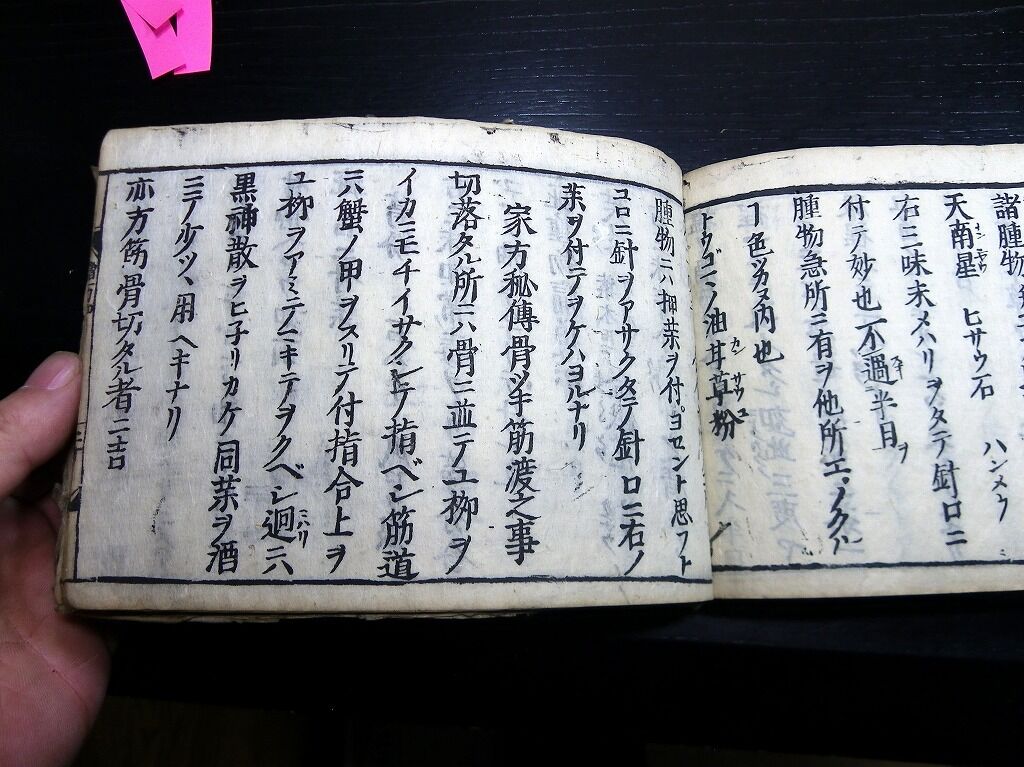 諸腫物
天南星 ヒサウ石 ハンメウ
右三味末メハリヲタテ針口ニ
付テ妙也不過半日ヲ
腫物急所ニ有ヲ他所エノクル
ヿ 色ツカヌ内也
トウゴマノ油 耳草粉
腫物ニハ柳葉ヲ付ヨセント思フト
コロニ針ヲアサクタテ針口ニ右ノ
薬ヲ付テヲケハヨルナリ
家方秘傳骨ツキ筋渡之事
切落タル所ハ骨ニ並テユ柳ヲ
イカニモチイサクシテ指ベシ筋道
ニハ蟹ノ甲ヲスリテ付指合上ヲ
ユ柳ヲアミニキテヲクベシ廻ニハ
黒神散ヲヒ子リカケ同薬ヲ酒
ニテ少ツヽ用ヘキナリ
亦方筋骨切タル者ニ